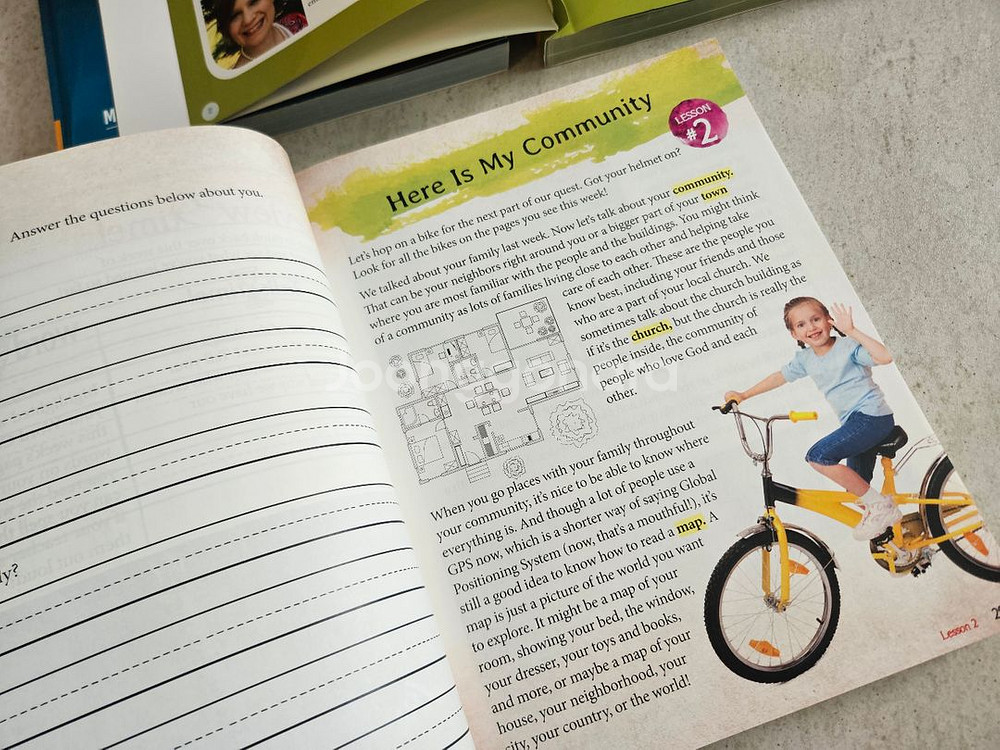 M
Answer the questions below about you.
ly?
Here Is My Community
LESSON
#2
Let's hop on a bike for the next part of our quest. Got your helmet on?
Look for all the bikes on the pages you see this week!
We talked about your family last week. Now let's talk about your community.
That can be your neighbors right around you or a bigger part of your town
where you are most familiar with the people and the buildings. You might think
of a community as lots of families living close to each other and helping take
care of each other. These are the people you
know best, including your friends and those
who are a part of your local church. We
sometimes talk about the church building as
if it's the church, but the church is really the
people inside, the community of
people who love God and each
other.
When you go places with your family throughout
your community, it's nice to be able to know where
everything is. And though a lot of people use a
GPS now, which is a shorter way of saying Global
Positioning System (now, that's a mouthful!), it's
still a good idea to know how to read a map. A
map is just a picture of the world you want
to explore. It might be a map of your
room, showing your bed, the window,
your dresser, your toys and books,
and more, or maybe a map of your
house, your neighborhood, your
city, your country, or the world!
Lesson 2